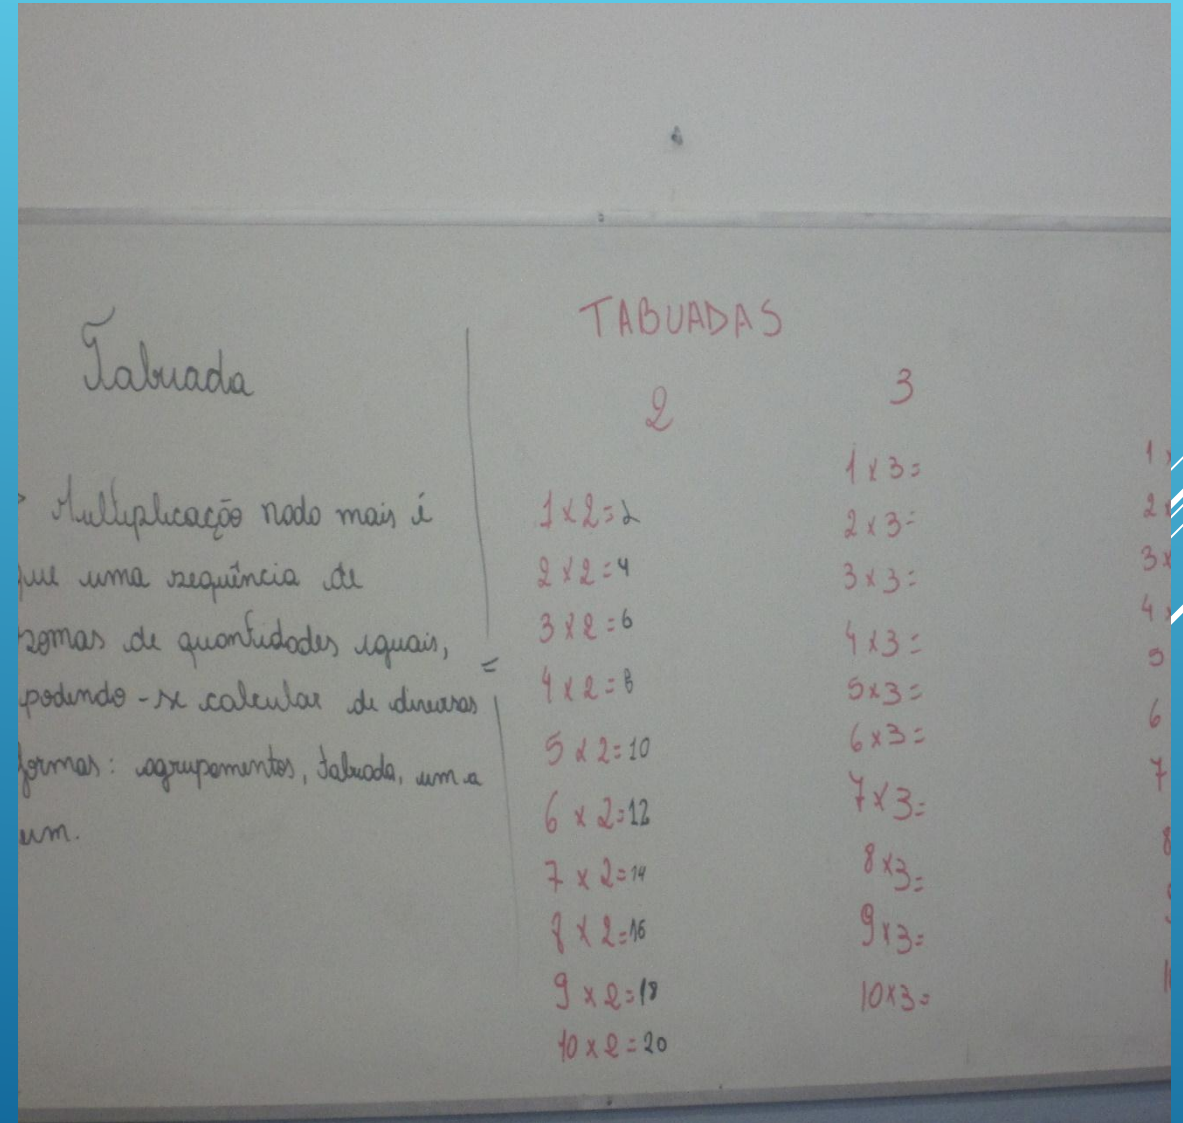 Tabuada
Multiplicação nada mais é
que uma sequência de
somas de quantidades iguais,
podendo-se calcular de diversas
formas: agrupamentos, tabuada, um a
um.
TABUADAS
2
1 x 2=2
2 x 2=4
3 x 2=6
4 x 2=8
5 x 2=10
6 x 2=12
7 x 2=14
8 x 2=16
9 x 2=18
10 x 2=20
3
1 x 3=
2 x 3=
3 x 3=
4 x 3=
5 x 3=
6 x 3=
7 x 3=
8 x 3=
9 x 3=
10 x 3=
1 x
2 x
3 x
4 x
5
6
7
8